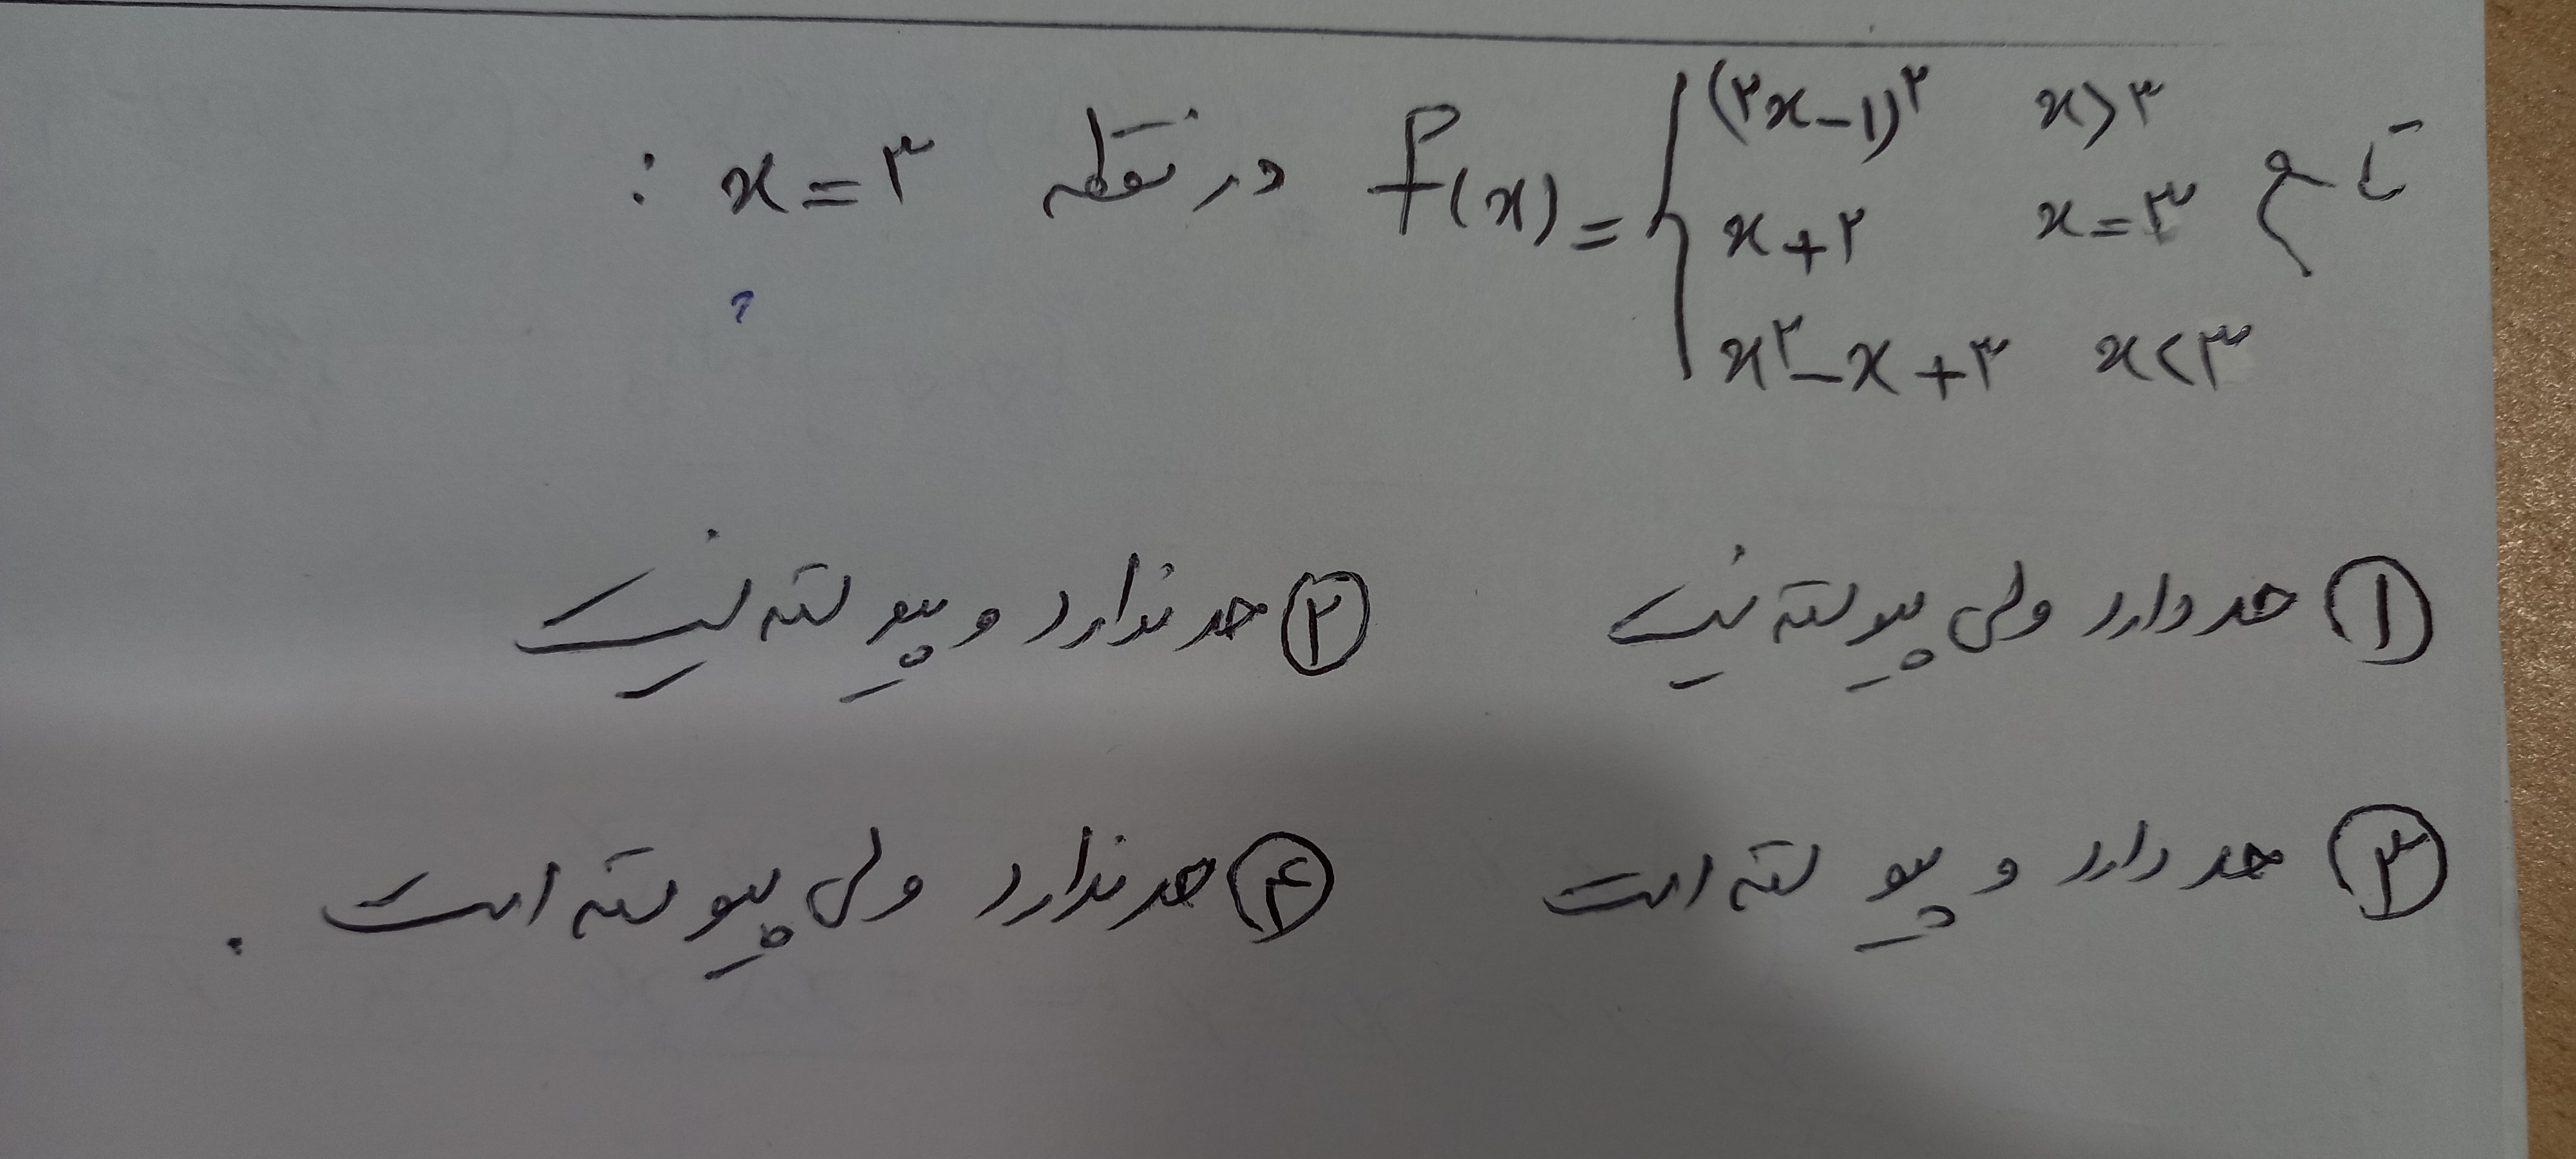 تابع f(x) = { (۲x-۱)^۲   x>۳
x+۲   x=۳
x^۲-x+۳   x<۳
در نقطه x=۳ :
① حد دارد ولی پیوسته نیست   ② حد ندارد و پیوسته نیست
③ حد دارد و پیوسته است   ④ حد ندارد ولی پیوسته است .